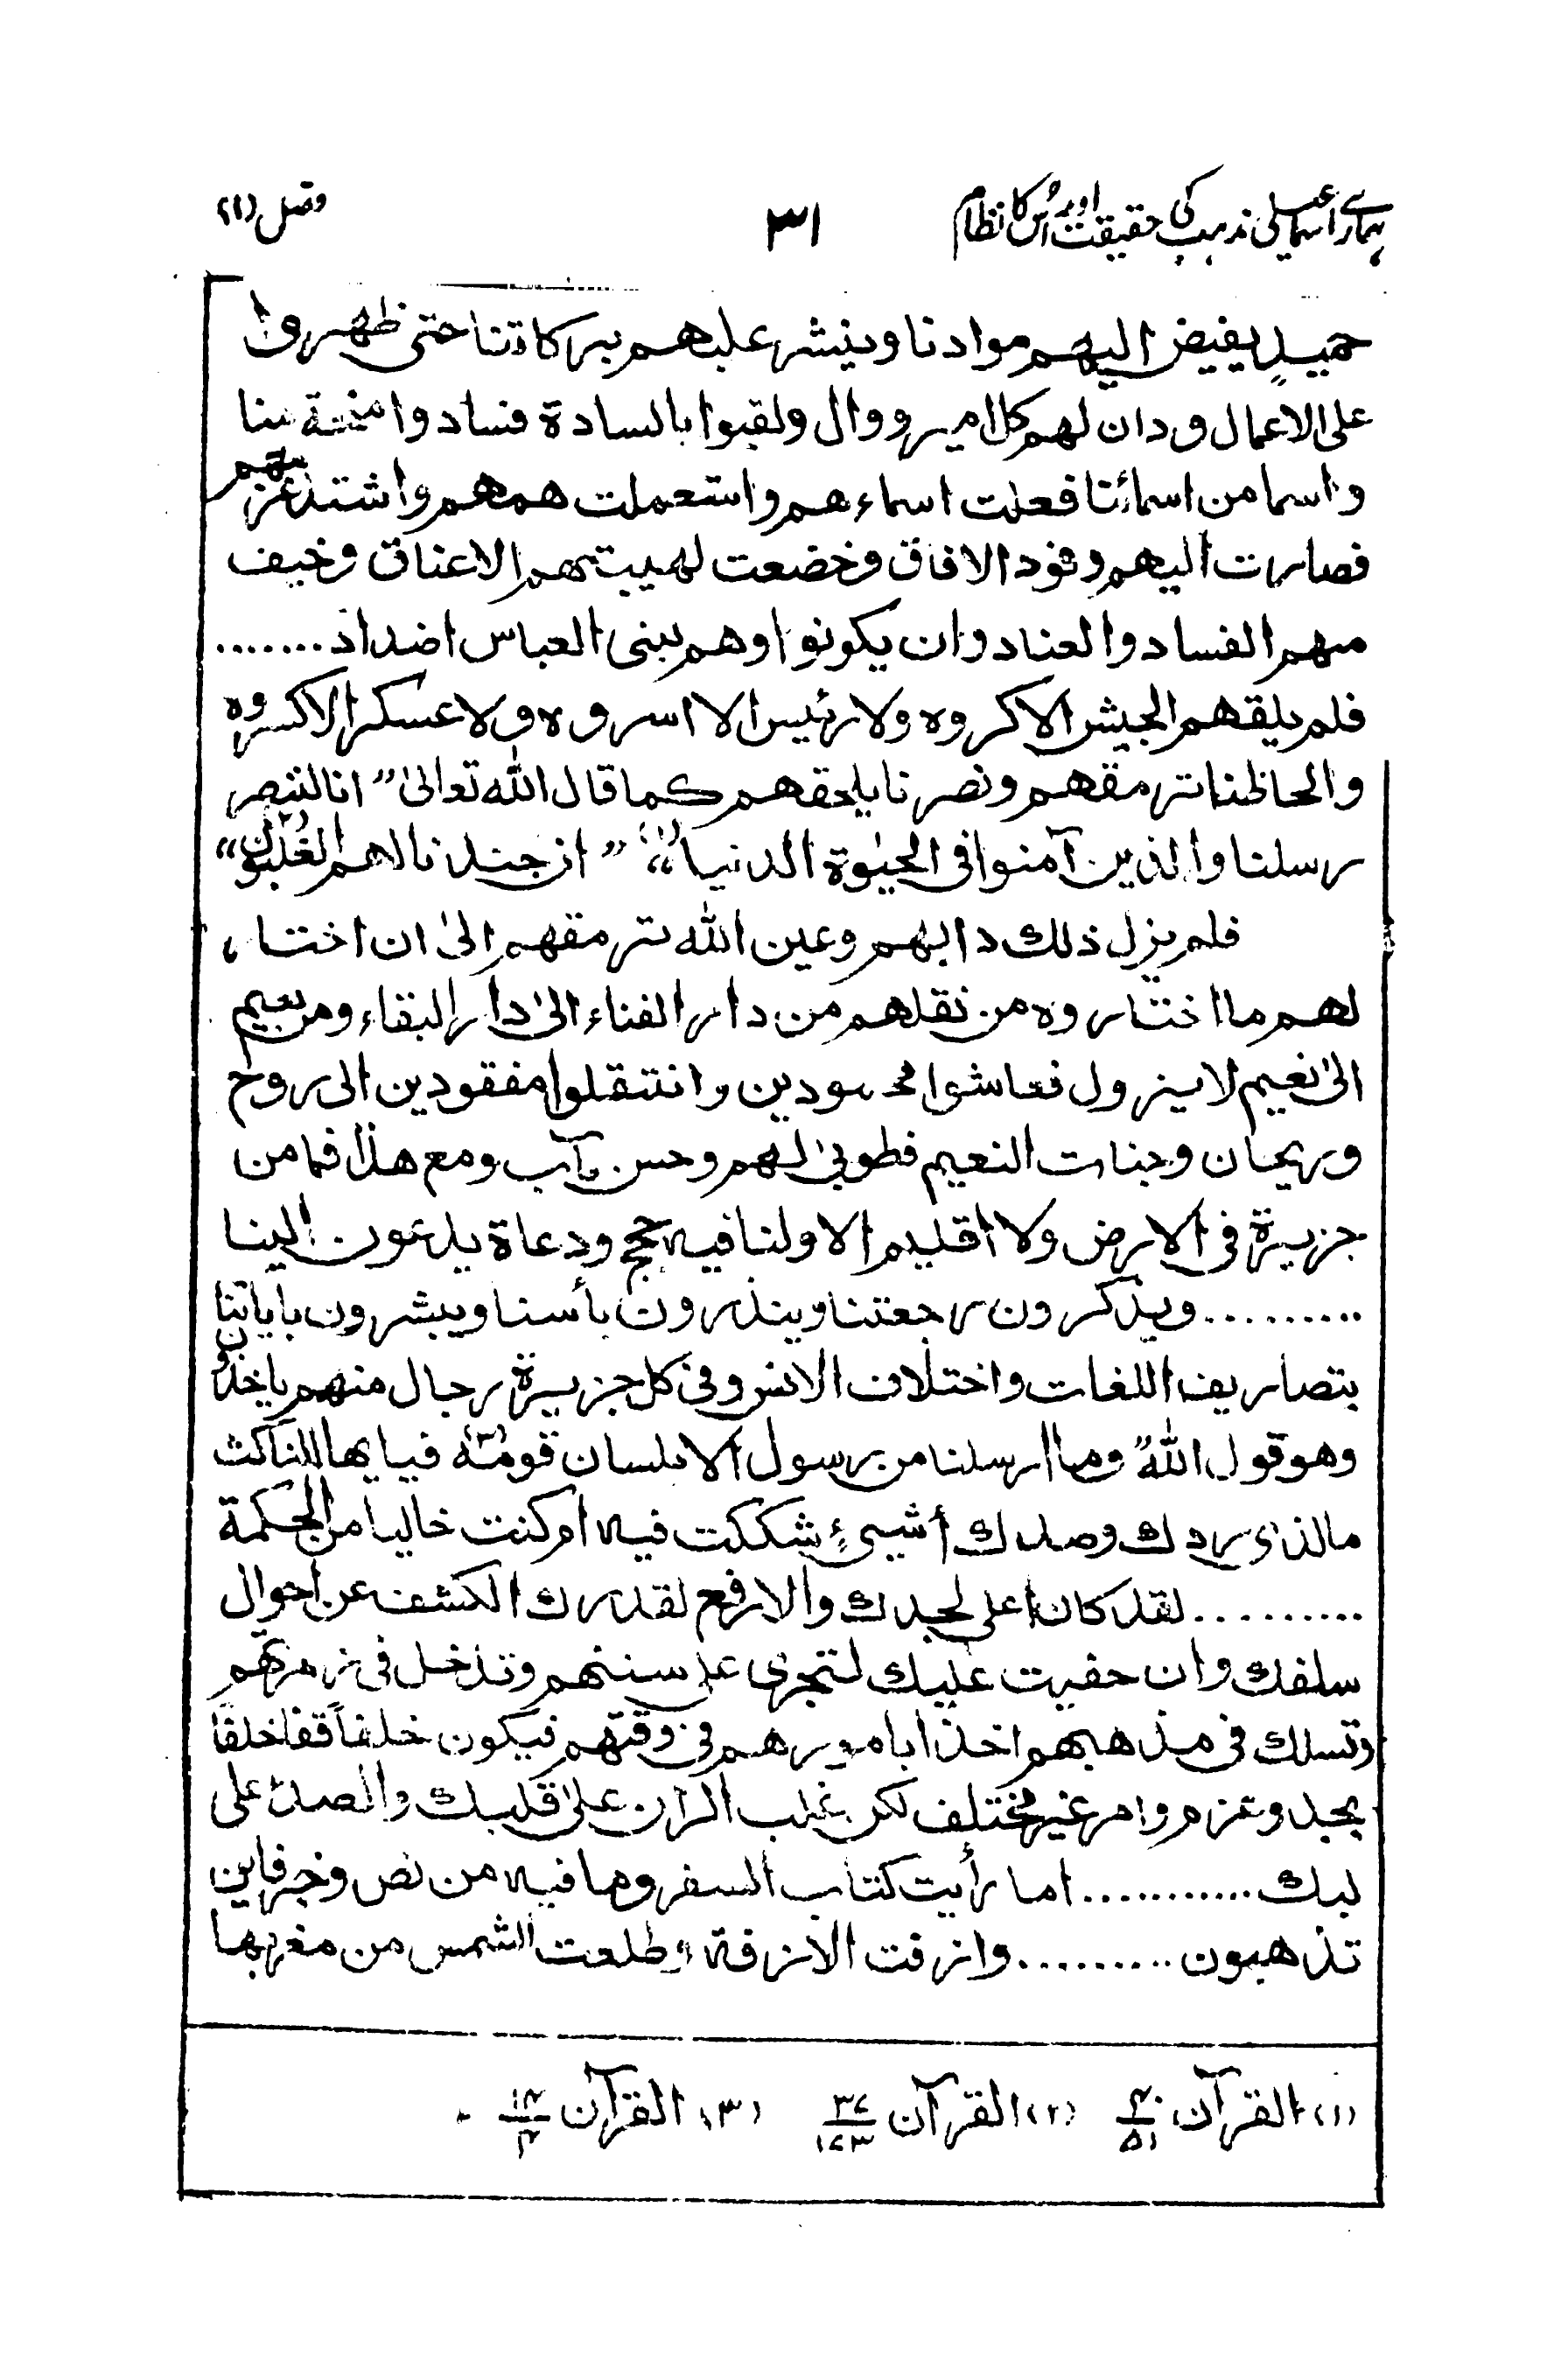 ہمارے اسماعیلی مذہب کی حقیقت اور اُس کا نظام
۳۱
فصل (۱)
حميدٍ يفيض اليهم موادنا وينشر عليهم بركاتنا حتى ظهروا
على الاعمال ودان لهم كل امير ووال ولقبوا بالسادة فسادوا منحة منا
واسما من اسمائنا فعلت اسماءهم واستعملت هممهم واشتد عزمهم
فصارت اليهم وفود الافاق وخضعت لهيبتهم الاعناق وخيف
منهم الفساد والعناد وان يكونوا وهم لبنى العباس اضداد ........
فلم يلقهم الجيش الا كروه ولا رئيس الا اسروه ولا عسكر الا كسروه
والحاظنا ترمقهم ونصرنا يلحقهم كما قال الله تعالىٰ ”انا لننصر
رسلنا والذين آمنوا فى الحيٰوة الدنيا“(۱) ”ان جندنا لهم الغٰلبون“(۲)
فلم يزل ذلك دابهم وعين الله ترمقهم الىٰ ان اختار
لهم ما اختاروه من نقلهم من دار الفناء الىٰ دار البقاء ومن نعيم
الىٰ نعيم لا يزول فعاشوا محمودين وانتقلوا مفقودين الى روح
وريحان وجنات النعيم فطوبىٰ لهم وحسن مآب ومع هذا فما من
جزيرة فى الارض ولا اقليم الا ولنا فيه حجج ودعاة يدعون الينا
.......... ويذكرون رجعتنا وينذرون بأسنا ويبشرون باياتنا
بتصاريف اللغات واختلاف الالسن وفى كل جزيرة رجال منهم ياخذون
وهو قول الله ”وما ارسلنا من رسول الا بلسان قومه“(۳) فيا ايها الناكث
مالذى ردك وصدك أشيىءٍ شككت فيه ام كنت خاليا من الحكمة
.......... لقد كان اعلى لجدك والارفع لقدرك الكشف عن احوال
سلفك وان خفيت عليك لتجرى على سننهم وتدخل فى زمرتهم
وتسلك فى مذهبهم اخذا بامورهم فى وقتهم فيكون خلفاً قفا خلفا
بجد وعزم وامر غير مختلف لكن غلب الران علىٰ قلبك والصدىٰ على
لبك ............ اما رأيت كتاب السفر وما فيه من نص وخبر فاين
تذهبون .......... وازفت الآزفة وطلعت الشمس من مغربها
(۱) القرآن ۴۰/۵۱ (۲) القرآن ۳۷/۱۷۳ (۳) القرآن ۱۴/۴ -